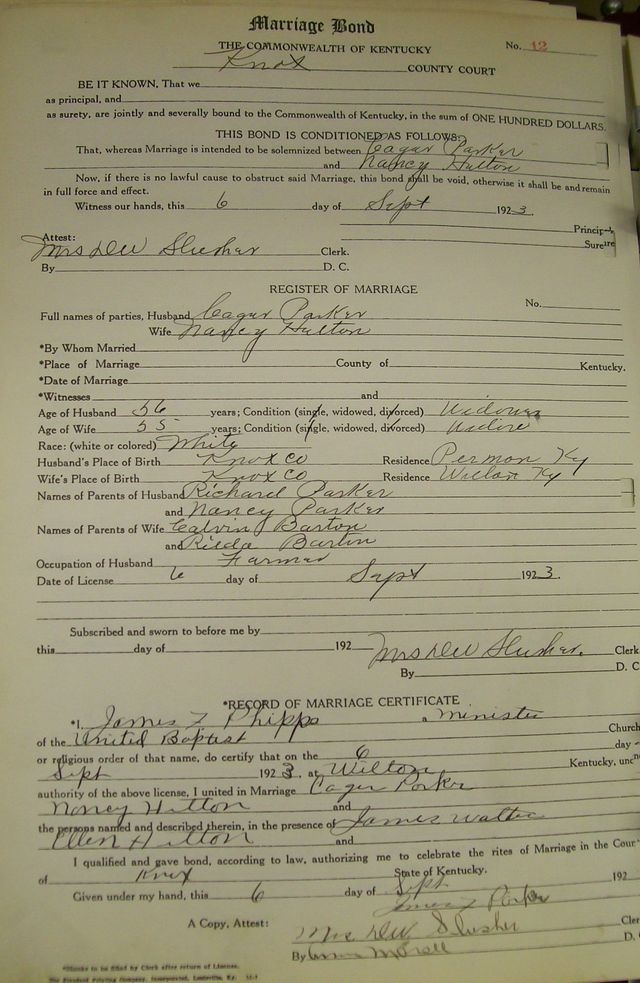 Marriage Bond
THE COMMONWEALTH OF KENTUCKY No. 12
Knox COUNTY COURT
BE IT KNOWN, That we
as principal, and
as surety, are jointly and severally bound to the Commonwealth of Kentucky, in the sum of ONE HUNDRED DOLLARS.
THIS BOND IS CONDITIONED AS FOLLOWS:
That, whereas Marriage is intended to be solemnized between Cager Parker
and Nancy Hulton
Now, if there is no lawful cause to obstruct said Marriage, this bond shall be void, otherwise it shall be and remain
in full force and effect.
Witness our hands, this 6 day of Sept 1923.
Principal
Surety
Attest:
Mrs DW Slusher Clerk.
By D. C.
REGISTER OF MARRIAGE
No.
Full names of parties, Husband Cager Parker
Wife Nancy Hulton
*By Whom Married
*Place of Marriage County of Kentucky.
*Date of Marriage
*Witnesses and
Age of Husband 56 years; Condition (single, widowed, divorced) Widower
Age of Wife 55 years; Condition (single, widowed, divorced)
Race: (white or colored) White
Husband's Place of Birth Knox Co Residence Permon Ky
Wife's Place of Birth Knox Co Residence Wilton Ky
Names of Parents of Husband Richard Parker
and Nancy Parker
Names of Parents of Wife Calvin Barton
and Rilda Barton
Occupation of Husband Farmer
Date of License 6 day of Sept 1923.
Subscribed and sworn to before me by
this day of 192 Mrs DW Slusher. Clerk
By D. C.
*RECORD OF MARRIAGE CERTIFICATE
*I, James F Phipps a minister
of the United Baptist Church
or religious order of that name, do certify that on the 6 day
Sept 1923, at Wilton Kentucky, under
authority of the above license, I united in Marriage Cager Parker
Nancy Hilton and
the persons named and described therein, in the presence of James
Ellen Hilton and
I qualified and gave bond, according to law, authorizing me to celebrate the rites of Marriage in the Cour
of Knox State of Kentucky.
Given under my hand, this 6 day of Sept 192
James
A Copy, Attest: Mrs. DW. Slusher Cler
By D. C.
*Blanks to be filled by Clerk after return of License.
The Standard Printing Company, Incorporated, Louisville, Ky.